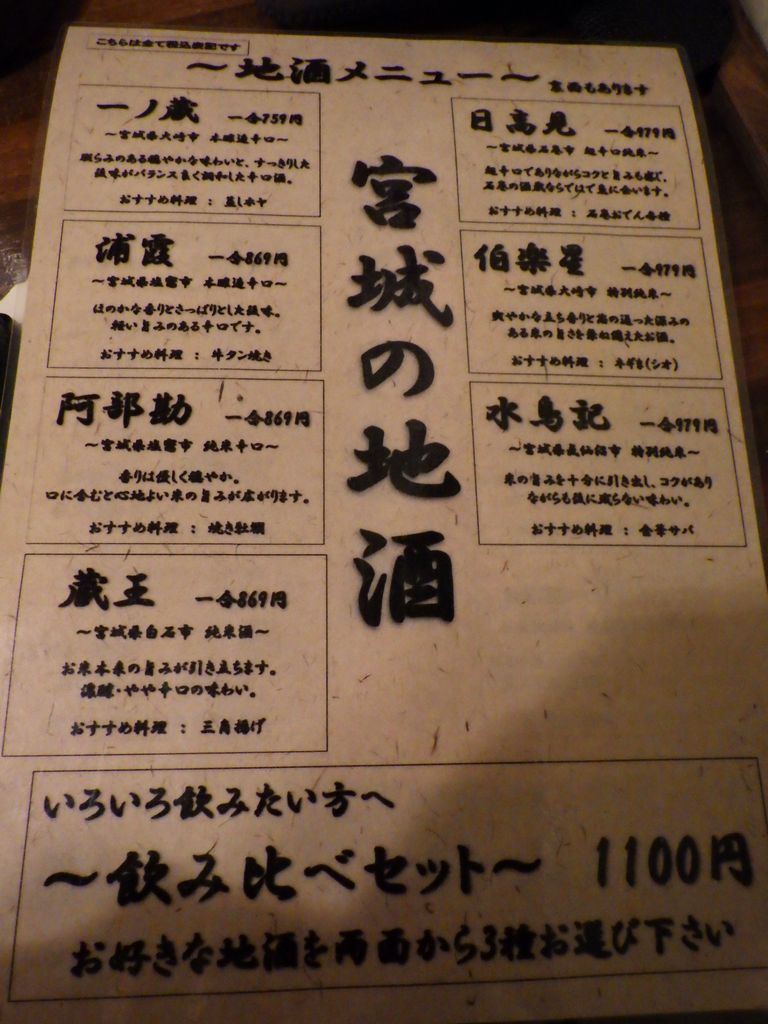 こちらは全て税込表記です
～地酒メニュー～
裏面もあります
宮城の地酒
一ノ蔵 一合759円
～宮城県大崎市 本醸造辛口～
膨らみのある穏やかな味わいと、すっきりした
後味がバランス良く調和した辛口酒。
おすすめ料理 : 蒸しホヤ
浦霞 一合869円
～宮城県塩竈市 本醸造辛口～
ほのかな香りとさっぱりとした後味。
軽い旨みのある辛口です。
おすすめ料理 : 牛タン焼き
阿部勘 一合869円
～宮城県塩竈市 純米辛口～
香りは優しく穏やか。
口に含むと心地よい米の旨みが広がります。
おすすめ料理 : 焼き牡蠣
蔵王 一合869円
～宮城県白石市 純米酒～
お米本来の旨みが引き立ちます。
濃醇・やや辛口の味わい。
おすすめ料理 : 三角揚げ
日高見 一合979円
～宮城県石巻市 超辛口純米～
超辛口でありながらコクと旨みも感じ、
石巻の酒蔵ならではで魚に合います。
おすすめ料理 : 石巻おでん各種
伯楽星 一合979円
～宮城県大崎市 特別純米～
爽やかな立ち香りと芯の通った深みの
ある米の旨さを兼ね備えたお酒。
おすすめ料理 : ネギま(シオ)
水鳥記 一合979円
～宮城県気仙沼市 特別純米～
米の旨みを十分に引き出し、コクがあり
ながらも後に残らない味わい。
おすすめ料理 : 金華サバ
いろいろ飲みたい方へ
～飲み比べセット～ 1100円
お好きな地酒を両面から3種お選び下さい